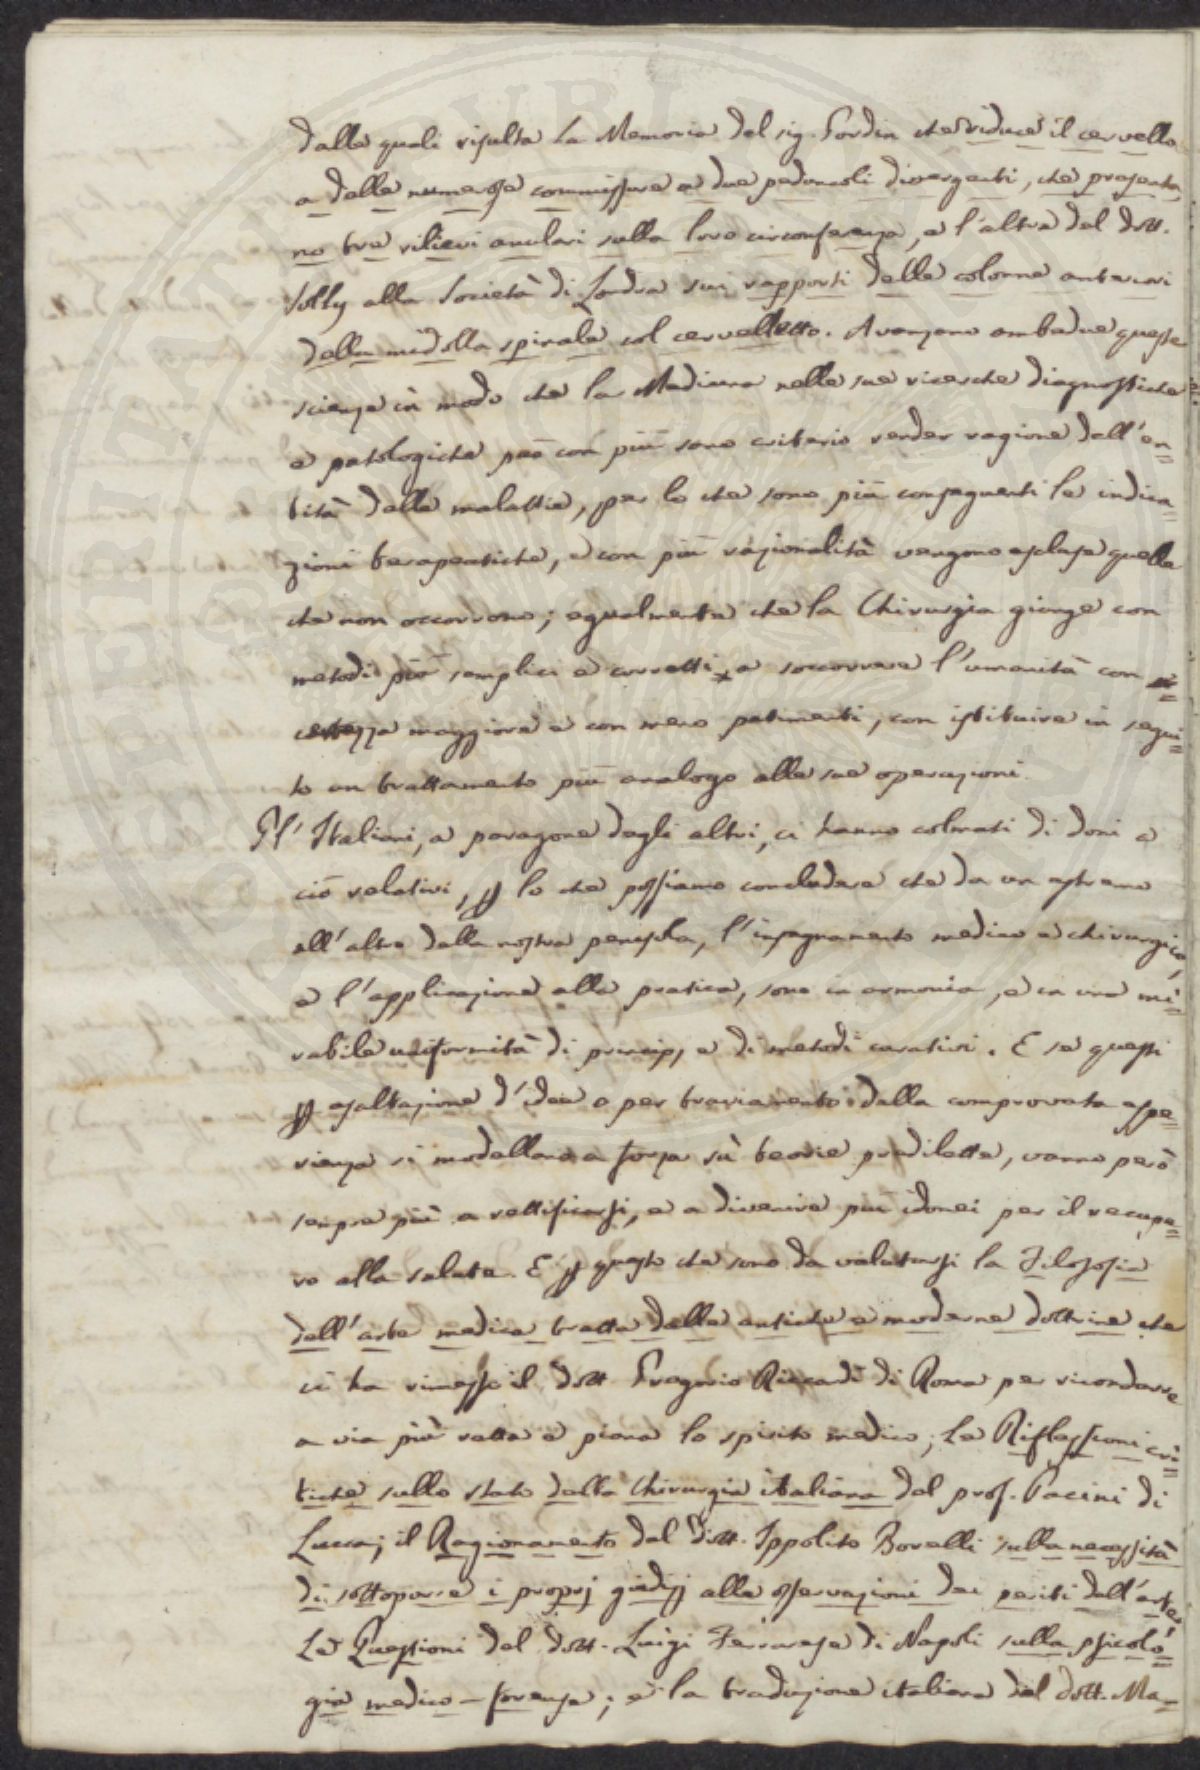 dalle quali risulta la Memoria del sig. Jordin che riduce il cervello
a delle numerose commissure a due peduncoli divergenti, che presenta,
no tre rilievi anulari sulla loro circonferenza, e l'altra del dott.
Solly alla Società di Londra sui rapporti delle colonne anteriori
della midolla spinale col cervelletto. Avanzano ambedue queste
scienze in modo che la Medicina nelle sue ricerche diagnostiche
e patologiche può con più sano criterio render ragione dell'en=
tità delle malattie, per lo che sono più conseguenti le indica=
zioni terapeutiche, e con più razionalità vengono escluse quelle
che non occorrono; egualmente che la Chirurgia giunge con
metodi più semplici e corretti a soccorrere l'umanità con
certezza maggiore e con meno patimenti, con istituire in segui=
to un trattamento più analogo alle sue operazioni.
Gl'Italiani, a paragone degli altri, ci hanno colmati di doni a
ciò relativi, p lo che possiamo concludere che da un estremo
all'altro della nostra penisola, l'insegnamento medico e chirurgico,
e l'applicazione alla pratica, sono in armonia, e in una mi=
rabile uniformità di principj e di metodi curativi. E se questi
p esaltazione d'idee o per traviamento dalla comprovata espe=
rienza si modellano a forza sù teorie predilette, vanno però
sempre più a rettificarsi, e a divenire più idonei per il recupe=
ro alla salute. E p questo che sono da valutarsi la Filosofia
dell'arte medica tratta dalle antiche e moderne dottrine che
ci ha rimesso il dott. Gregorio Riccardi di Roma per ricondurre
a via più retta e piana lo spirito medico; Le Riflessioni cri=
tiche sullo stato della Chirurgia italiana del prof. Pacini di
Lucca; il Ragionamento del Dott. Ippolito Borelli sulla necessità
di sottoporre i proprj giudizj alle osservazioni dei periti dell'arte,
Le Questioni del dott. Luigi Ferrarese di Napoli sulla psicolo=
gia medico-forense; e la traduzione italiana del dott. Ma=